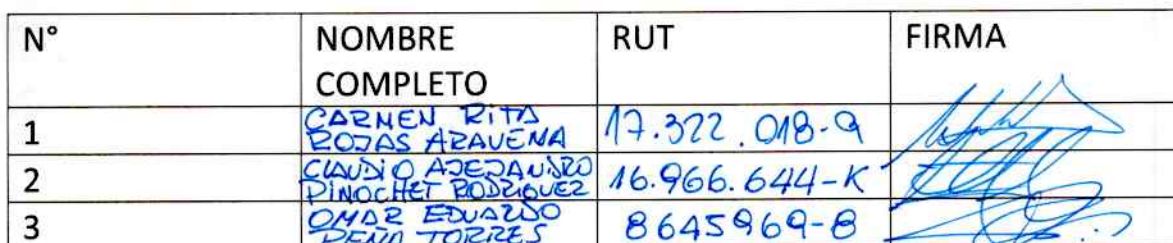 N° NOMBRE COMPLETO RUT FIRMA
1 CARMEN RITA ROJAS ARAVENA 17.322.018-9
2 CLAUDIO ALEJANDRO PINOCHET RODRIGUEZ 16.966.644-K
3 OMAR EDUARDO PEÑA TORRES 8645969-8